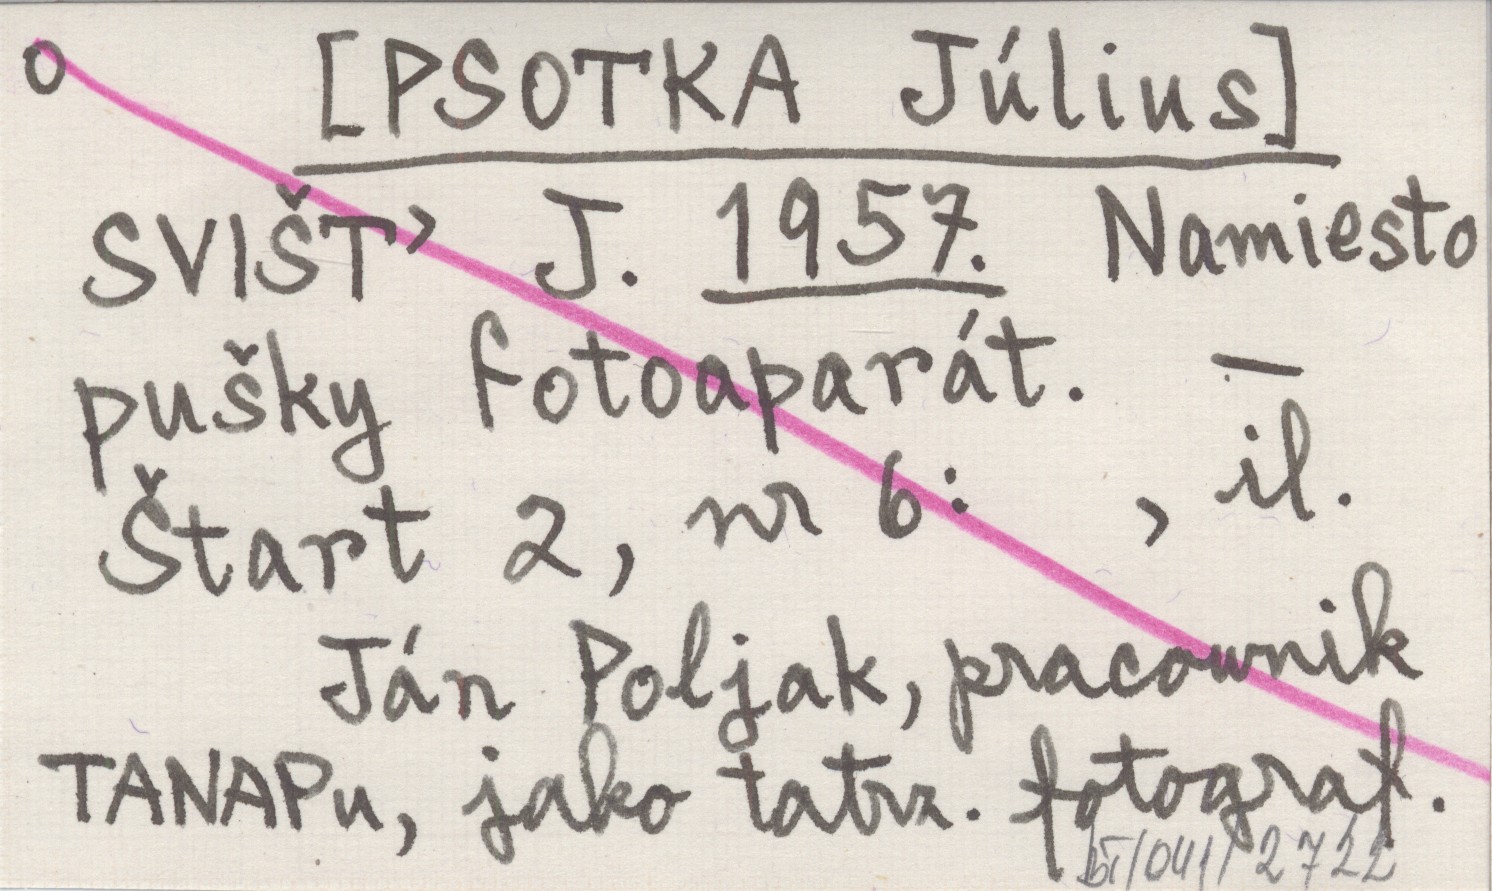 o [PSOTKA Július]
SVIŠŤ J. 1957. Namiesto
pušky fotoaparát. —
Štart 2, nr 6: , il.
Ján Poljak, pracownik
TANAPu, jako tatrz. fotograf.
/041/2722